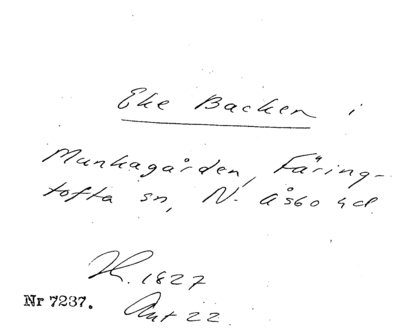 Eke Backen i
Munkagården, Färing-
tofta sn, N. Åsbo hd
H. 1827
Nr 7237.
Akt 22